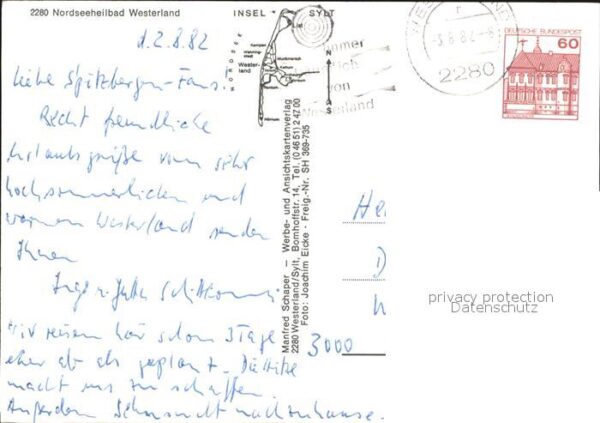 2280 Nordseeheilbad Westerland
INSEL SYLT
NORDSEE
Wester-
land
d. 2.8.82
Liebe Spitzbergen-Fans.
Recht freundliche
Urlaubsgrüße vom sehr
hochsommerlichen und
warmen Westerland senden
Ihnen
Inge u. Jutta
Wir reisen hier schon 3 Tage
eher ab als geplant. Die Hitze
macht uns zu schaffen.
Außerdem Sehnsucht nach zuhause.
Manfred Schaper — Werbe- und Ansichtskartenverlag
2280 Westerland/Sylt, Bomhoffstr. 14, Tel. (0 46 51) 2 47 00
Foto: Joachim Eicke - Freig.-Nr. SH 369-735
immer
von
Westerland
-3.8.82-8
2280
DEUTSCHE BUNDESPOST
60
He
D
3000
privacy protection
Datenschutz